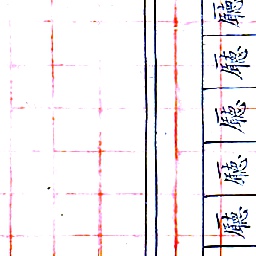 廳
廳
廳
廳
廳